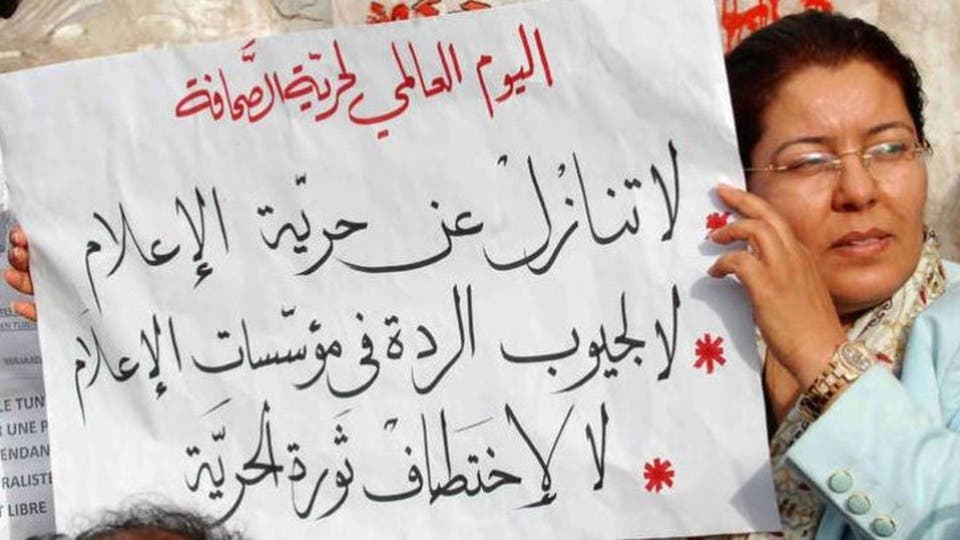 اليوم العالمي لحريّة الصَّحافة
* لا تنازُلْ عن حريّة الإعلام
* لا لجيوب الردة في مؤسّسات الإعلَام
* لا لإختَطافْ ثَورة الحريَّة
EN TUNI
LE TUN
R UNE P
ENDAN
RALISTE
T LIBRE